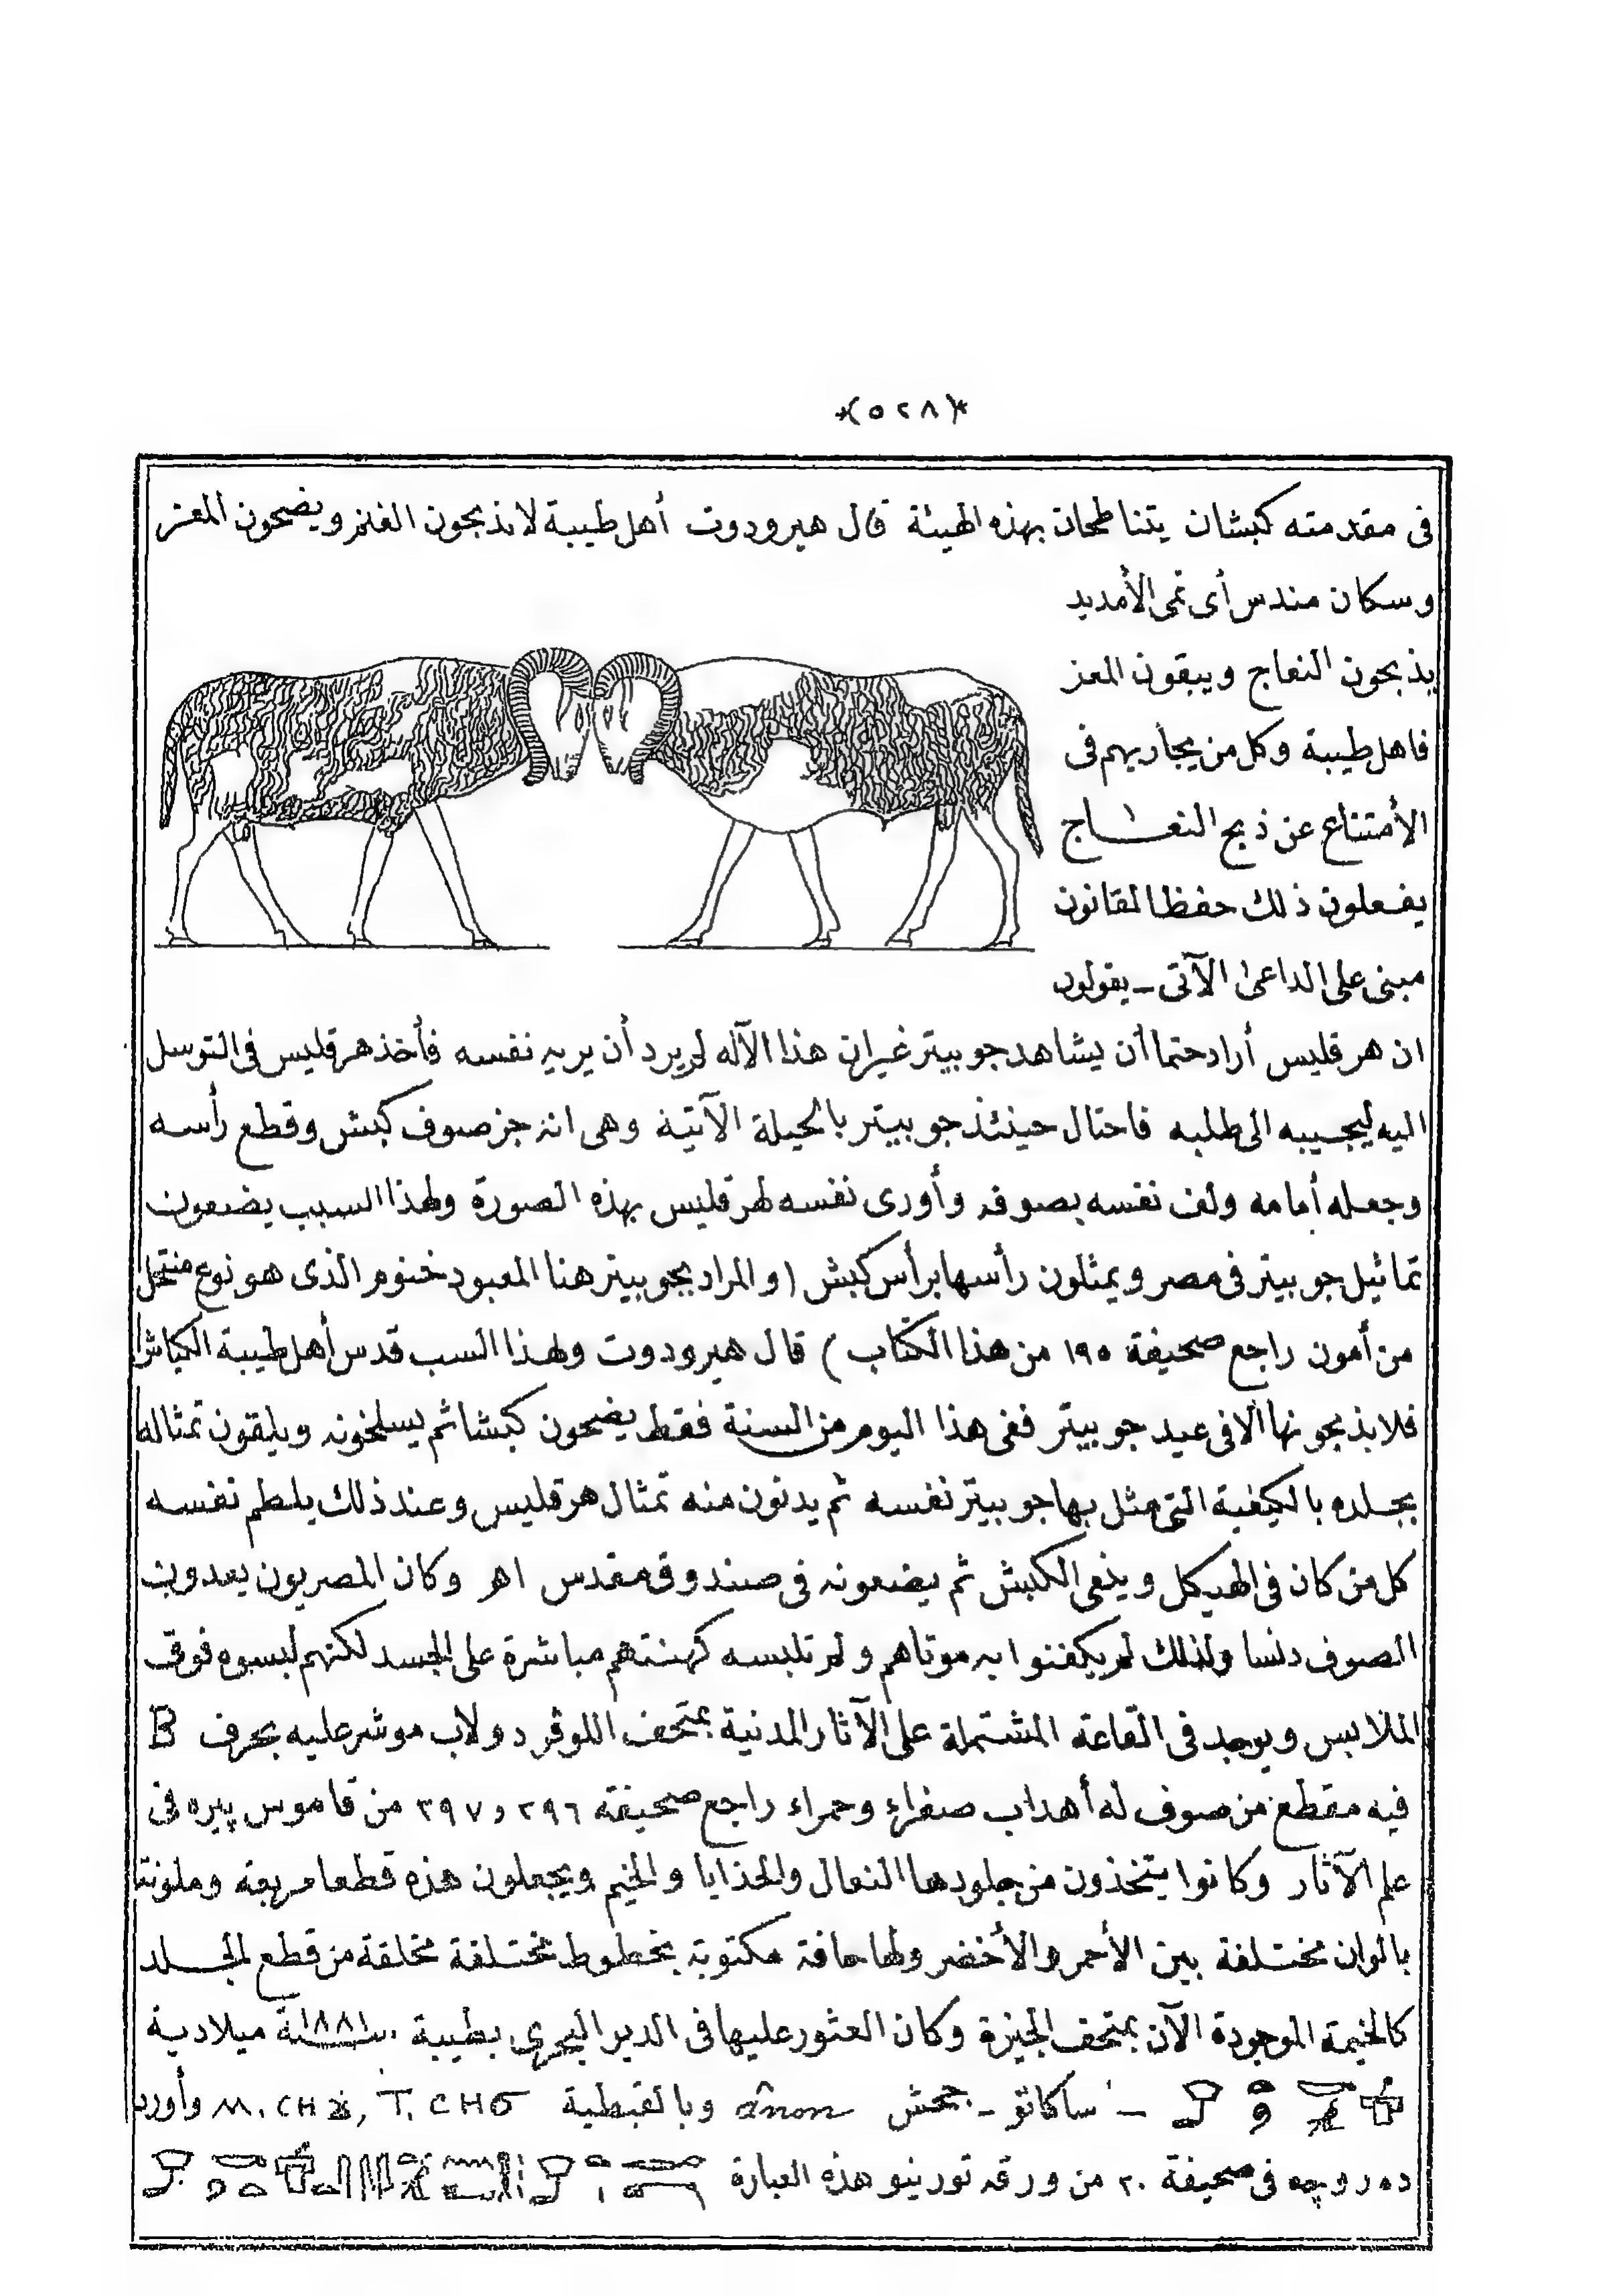 *(٥٢٨)*
فى مقدمته كبشان يتناطحان بهذه الهيئة قال هيرودوت أهل طيبة لا يذبحون الغنم ويضحون المعز
وسكان مندس أى تمى الأمديد
يذبحون النعاج ويبقون المعز
فاهل طيبة وكل من يجاريهم فى
الأمتناع عن ذبح النعاج
يفعلون ذلك حفظا لقانون
مبنى على الداعى الآتى ـ يقولون
ان هرقليس أراد حتما أن يشاهد جوبيتر غير ان هذا الآله لم يرد أن يريه نفسه فأخذ هرقليس فى التوسل
اليه ليجيبه الى طلبه فاحتال حينئذ جوبيتر بالحيلة الآتية وهى انه جز صوف كبش وقطع رأسه
وجعله أمامه ولف نفسه بصوفه وأورى نفسه لهرقليس بهذه الصورة ولهذا السبب يضعون
تماثيل جوبيتر فى مصر ويمثلون رأسها برأس كبش (والمراد بجوبيتر هنا المعبود خنوم الذى هو نوع منتحل
من أمون راجع صحيفة ١٩٥ من هذا الكتاب) قال هيرودوت ولهذا السب قدس أهل طيبة الكباش
فلا يذبحونها الا فى عيد جوبيتر ففى هذا اليوم من السنة فقط يضحون كبشا ثم يسلخونه ويلقون تمثاله
بجلده بالكيفية التى مثل بها جوبيتر نفسه ثم يدنون منه تمثال هرقليس وعند ذلك يلطم نفسه
كل من كان فى الهيكل وينعى الكبش ثم يضعونه فى صندوق مقدس اهر وكان المصريون يعدون
الصوف دنسا ولذلك لم يكفنوا به موتاهم ولم تلبسه كهنتهم مباشرة على الجسد لكنهم لبسوه فوق
الملابس ويوجد فى القاعة المشتملة على الآثار المدنية بمتحف اللوڤر دولاب موشر عليه بحرف B
فيه مقطع من صوف له أهداب صفراء وحمراء راجع صحيفة ٢٩٦ و٣٩٧ من قاموس پيره فى
علم الآثار وكانوا يتخذون من جلودها النعال والحذايا والخيم ويجعلون هذه قطعا مربعة وملونة
بالوان مختلفة بين الأحمر والأخضر ولها حافة مكتوبة بخطوط مختلفة مخلقة من قطع الجلد
كالخيمة الموجودة الآن بمتحف الجيزة وكان العثور عليها فى الدير البحرى بطيبة سنة ١٨٨١ ميلادية
ـ ساكاتو ـ جحش ânon وبالقبطية M. CHϫ, T. CHO وأورد
ده روچه فى صحيفة ٢٠ من ورقه تورينو هذه العبارة